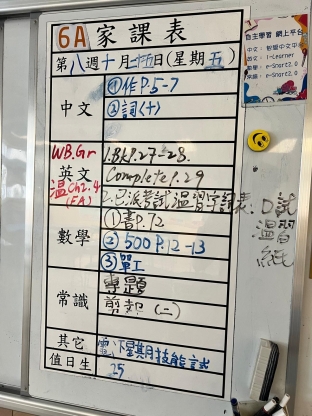 6A 家課表
第八週十月二十五日(星期五)
中文
①作P.5-7
②詞(十)
WB.Gr
英文
溫Ch2.4
(EA)
1.BKP.27-28.
Complete P.29
2.已派考試溫習字詞表:
數學
①書P.72
② 500 P.12-13
③單工
常識
專題
剪報 (二)
其它
下星期技能試
值日生
25
口試
溫習
紙
自主學習 網上平台
英文: i-Learner
數學: e-Smart2.0
常識: e-Smart2.0